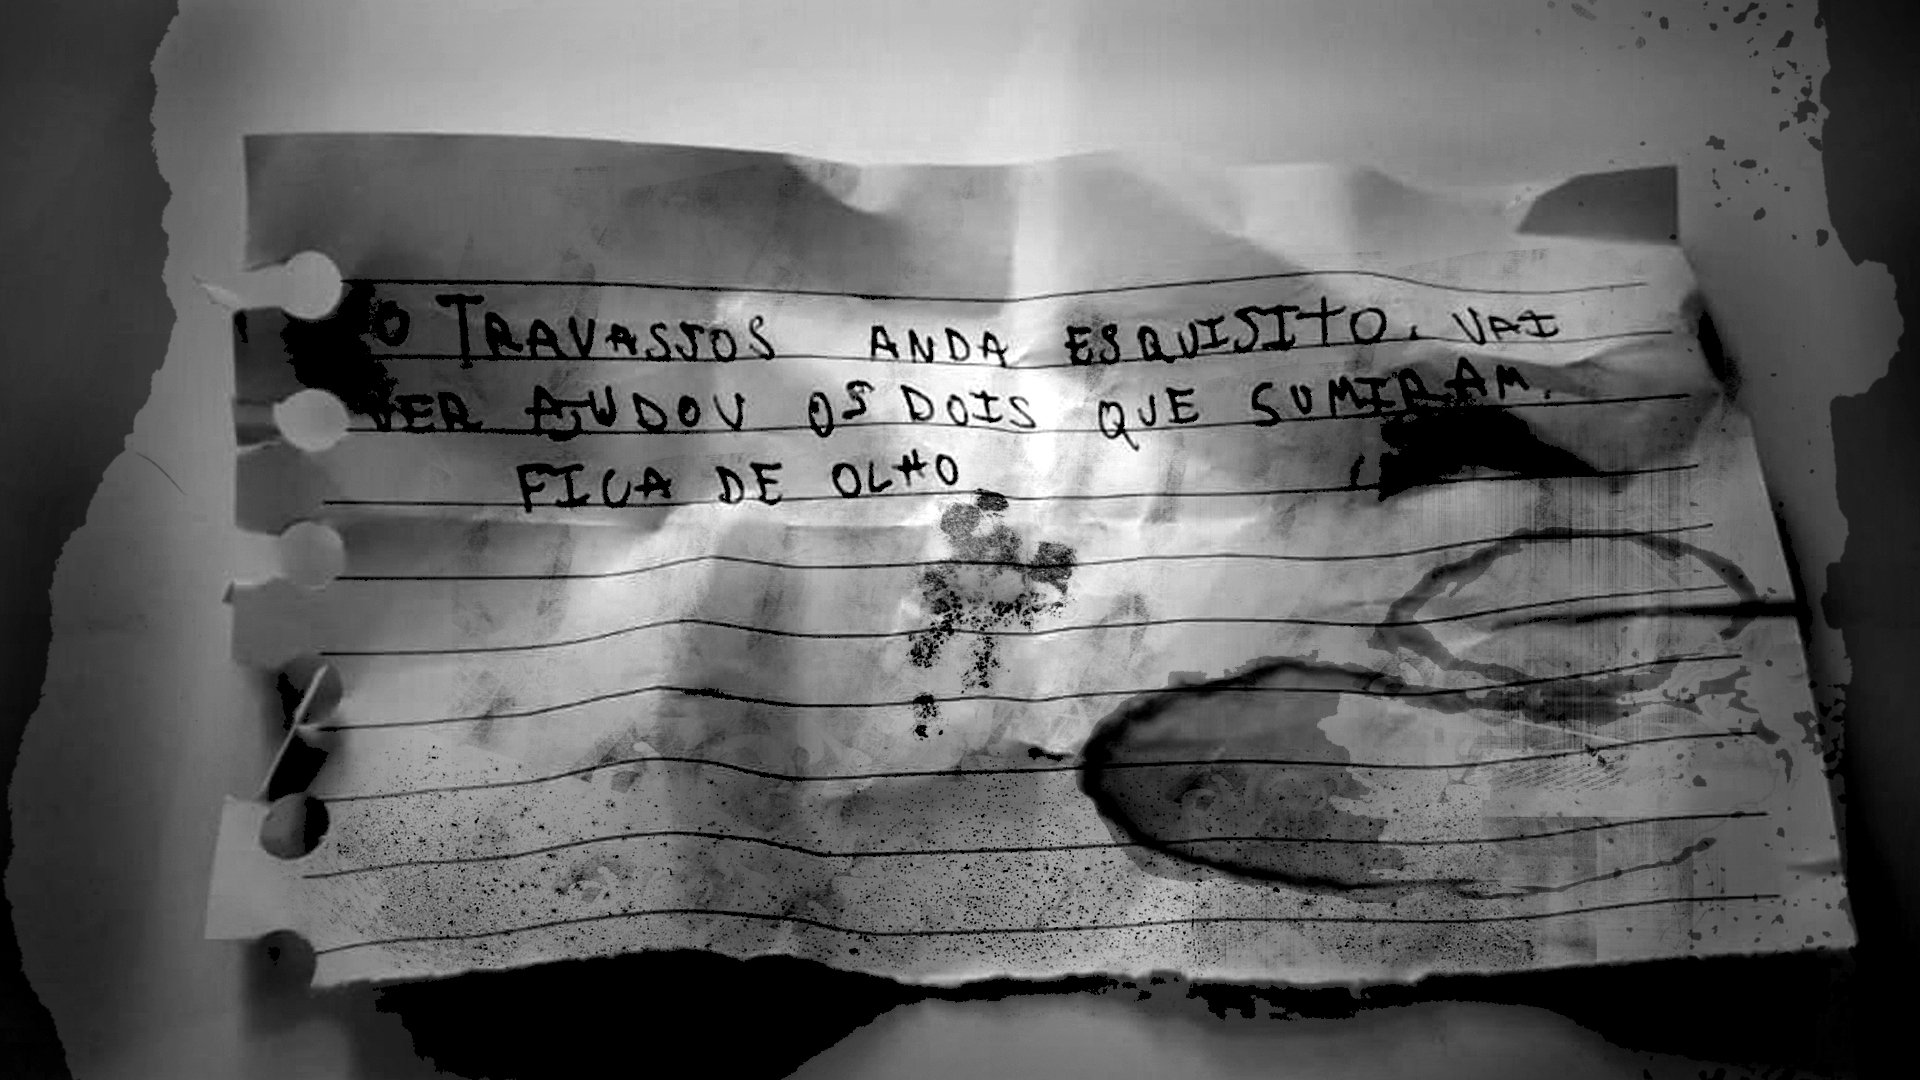 O TRAVASSOS ANDA ESQUISITO. VAI
VER AJUDOU OS DOIS QUE SUMIRAM.
FICA DE OLHO